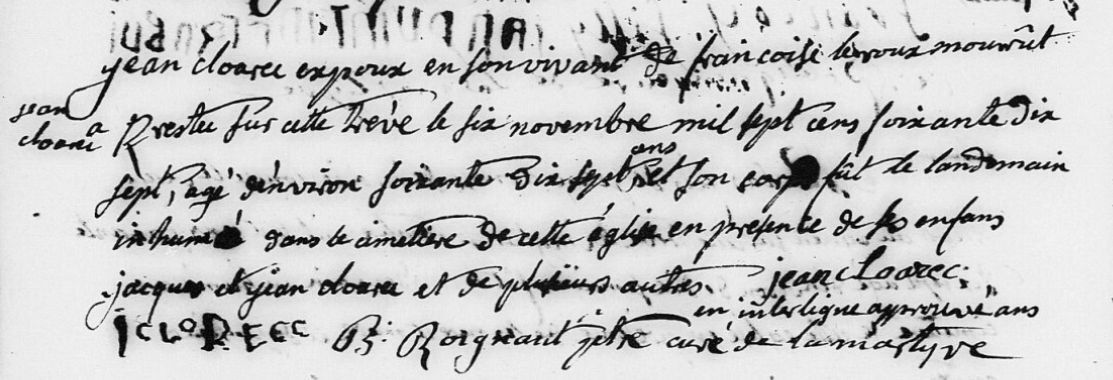 jean cloarec expoux en son vivant de francoise leroux mourût
jean
cloarec a restee sur cette trève le six novembre mil sept cens soixante dix
ans
sept, âgé dénviron soixante dix sept, et son corps fût le landemain
inhumé dans le cimetière de cette église en présence de ses enfans
jacques et jean cloarec et de plusieurs autres. jean cloarec.
en interligne approuvé ans
JCLOREEC ptre curé de la martyre